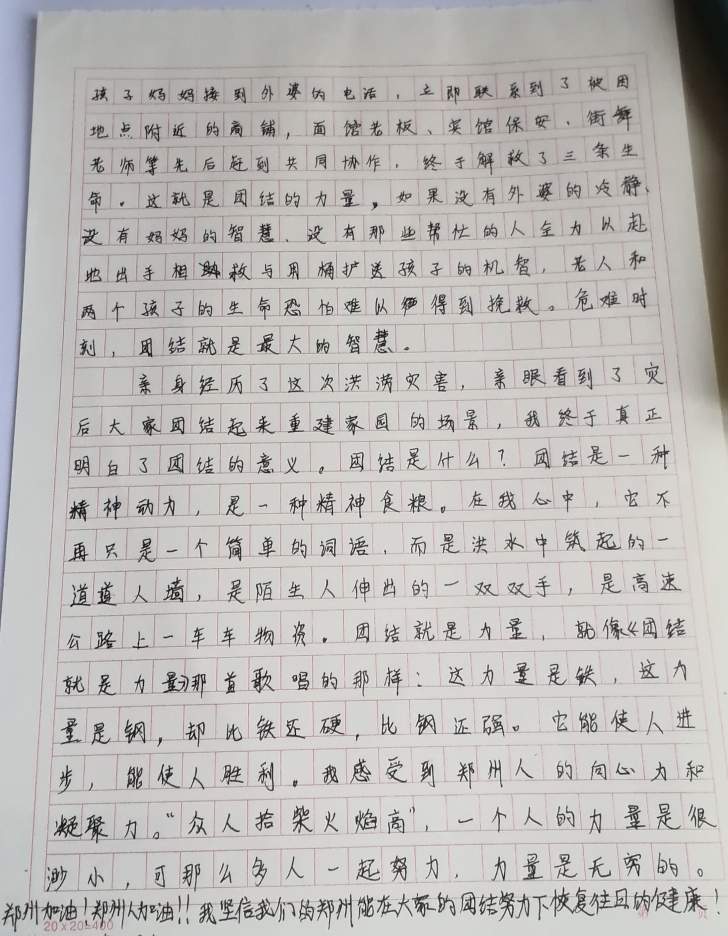 孩子妈妈接到外婆的电话，立即联系到了被困
地点附近的商铺，面馆老板、宾馆保安、街舞
老师等先后赶到共同协作，终于解救了三条生
命。这就是团结的力量，如果没有外婆的冷静、
没有妈妈的智慧、没有那些帮忙的人全力以赴
地出手相救与用桶护送孩子的机智，老人和
两个孩子的生命恐怕难以得到挽救。危难时
刻，团结就是最大的智慧。
亲身经历了这次洪涝灾害，亲眼看到了灾
后大家团结起来重建家园的场景，我终于真正
明白了团结的意义。团结是什么？团结是一种
精神动力，是一种精神食粮。在我心中，它不
再只是一个简单的词语，而是洪水中筑起的一
道道人墙，是陌生人伸出的一双双手，是高速
公路上一车车物资。团结就是力量，就像《团结
就是力量》那首歌唱的那样：这力量是铁，这力
量是钢，却比铁还硬，比钢还强。它能使人进
步，能使人胜利。我感受到郑州人的向心力和
凝聚力。“众人拾柴火焰高”，一个人的力量是很
渺小，可那么多人一起努力，力量是无穷的。
郑州加油！郑州人加油！！我坚信我们的郑州能在大家的团结努力下恢复往日的健康！
20×20=400